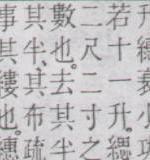 升繐衰小功
若十一升。緦
二尺二寸之
數也。去其半
其半、其布疏
事其縷也。繐